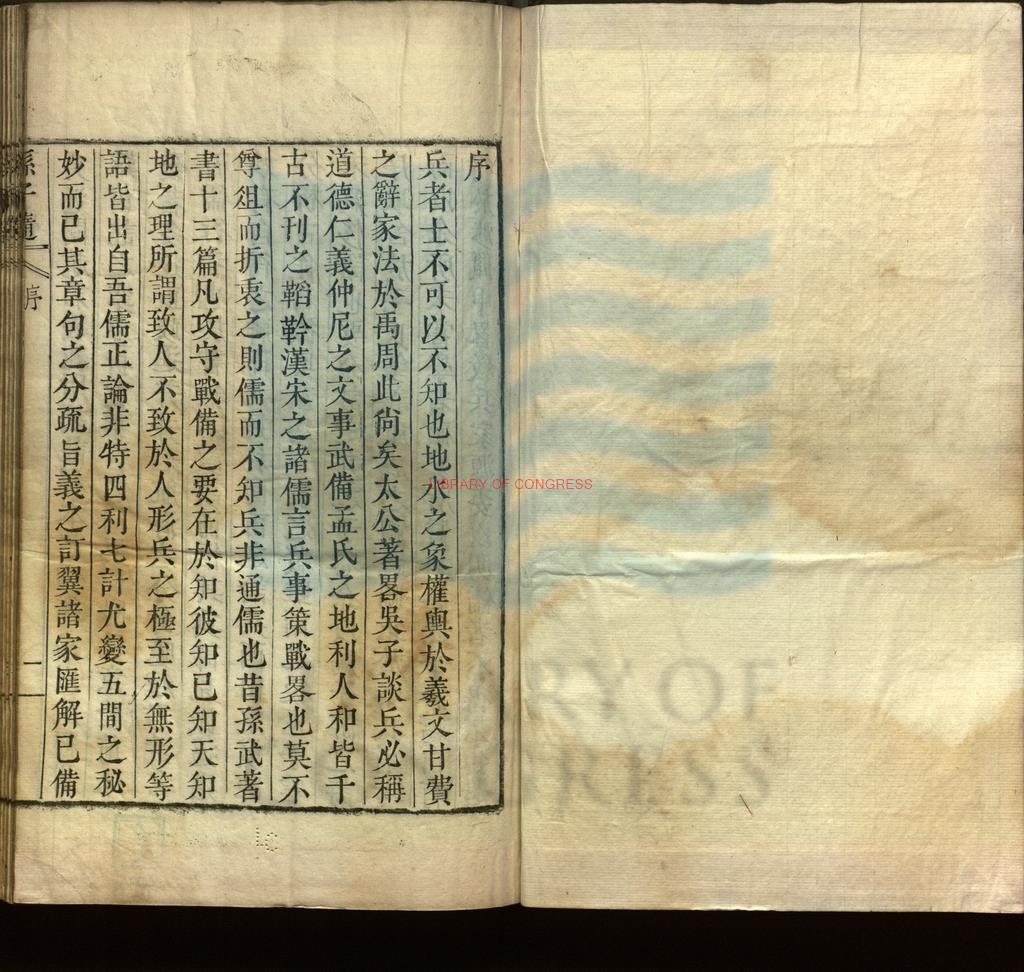 序
兵者士不可以不知也地水之象權輿於羲文甘費
之辭家法於禹周此尙矣太公著畧吳子談兵必稱
道德仁義仲尼之文事武備孟氏之地利人和皆千
古不刊之韜鈐漢宋之諸儒言兵事策戰畧也莫不
尊俎而折衷之則儒而不知兵非通儒也昔孫武著
書十三篇凡攻守戰備之要在於知彼知已知天知
地之理所謂致人不致於人形兵之極至於無形等
語皆出自吾儒正論非特四利七計尤變五間之秘
妙而已其章句之分疏旨義之訂翼諸家匯解已備
孫子
序
一
LIBRARY OF CONGRESS